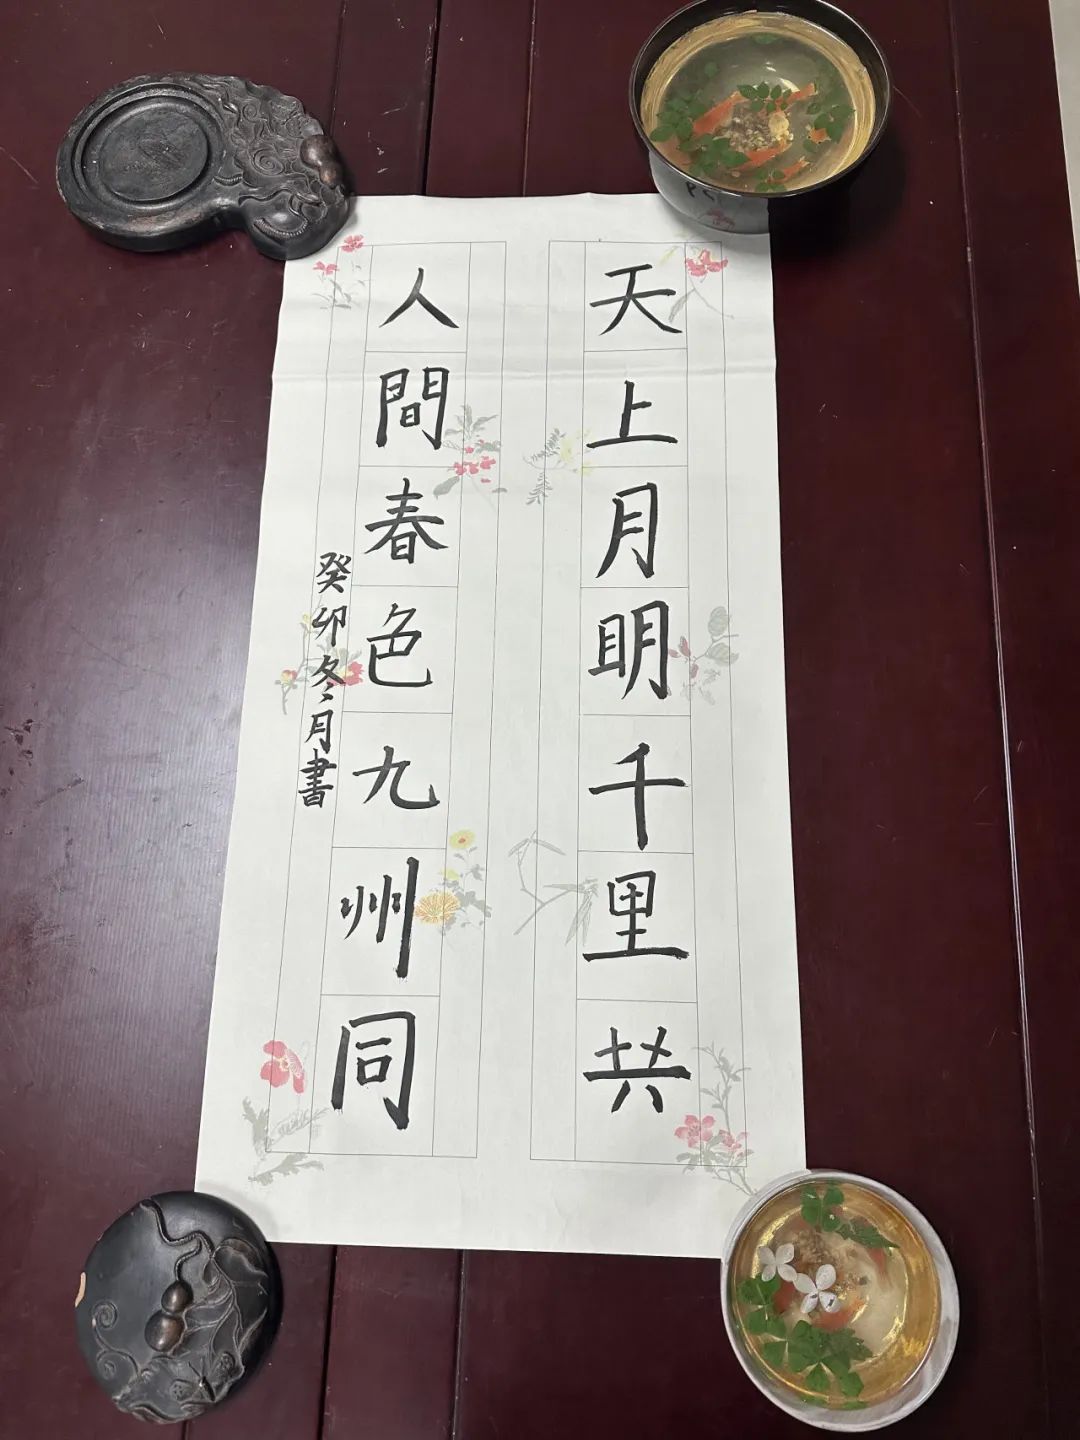 天上月明千里共
人間春色九州同
癸卯冬月書